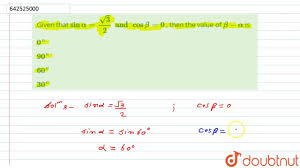 642525000
Given that sin α = √3/2 and cos β = 0, then the value of β − α is
0°
90°
60°
30°
Sol^n :- sin α = √3/2 ; cos β = 0
sin α = sin 60° cos β =
α = 60°
doubtnut